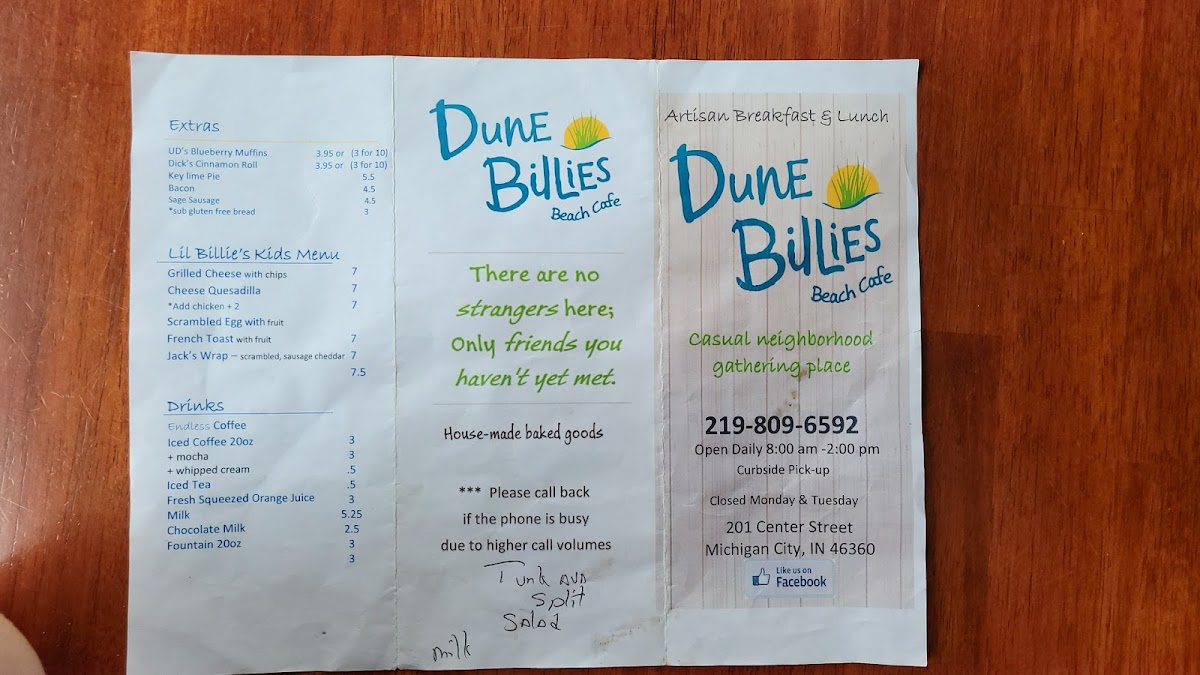 Extras
UD's Blueberry Muffins 3.95 or (3 for 10)
Dick's Cinnamon Roll 3.95 or (3 for 10)
Key lime Pie 5.5
Bacon 4.5
Sage Sausage 4.5
*sub gluten free bread 3
Lil Billie's Kids Menu
Grilled Cheese with chips 7
Cheese Quesadilla 7
*Add chicken + 2 7
Scrambled Egg with fruit
French Toast with fruit 7
Jack's Wrap – scrambled, sausage cheddar 7
7.5
Drinks
Endless Coffee
Iced Coffee 20oz 3
+ mocha 3
+ whipped cream .5
Iced Tea .5
Fresh Squeezed Orange Juice 3
Milk 5.25
Chocolate Milk 2.5
Fountain 20oz 3
3
Dune
Billies
Beach Cafe
There are no
strangers here;
Only friends you
haven't yet met.
House-made baked goods
*** Please call back
if the phone is busy
due to higher call volumes
Split
Salad
milk
Artisan Breakfast & Lunch
Dune
Billies
Beach Cafe
Casual neighborhood
gathering place
219-809-6592
Open Daily 8:00 am -2:00 pm
Curbside Pick-up
Closed Monday & Tuesday
201 Center Street
Michigan City, IN 46360
Like us on
Facebook